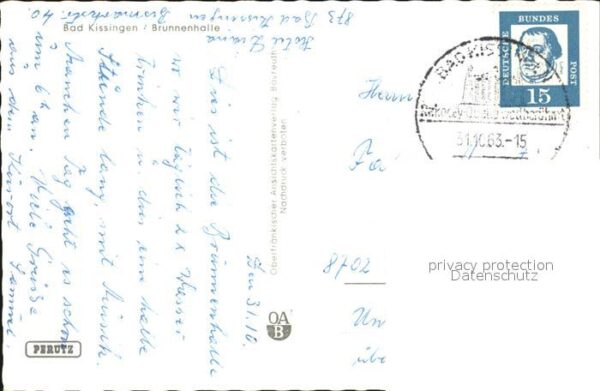 Bad Kissingen : Brunnenhalle
873 Bad Kissingen
Bismarckstr. 40.
Den 31.10.
Dies ist die Brunnenhalle
wo wir täglich 2x Wasser
trinken u. dies eine halbe
Stunde lang, mit Musik.
Manchen Tag geht es schon
um 6h an. Viele Grüsse
aus dem Kurort
PERUTZ
OA
B
Oberfränkischer Ansichtskartenverlag Bayreuth
Nachdruck verboten
Herrn
8702
DEUTSCHE
BUNDES
POST
15
BAD KISSINGEN
31.10.63.-15
privacy protection
Datenschutz